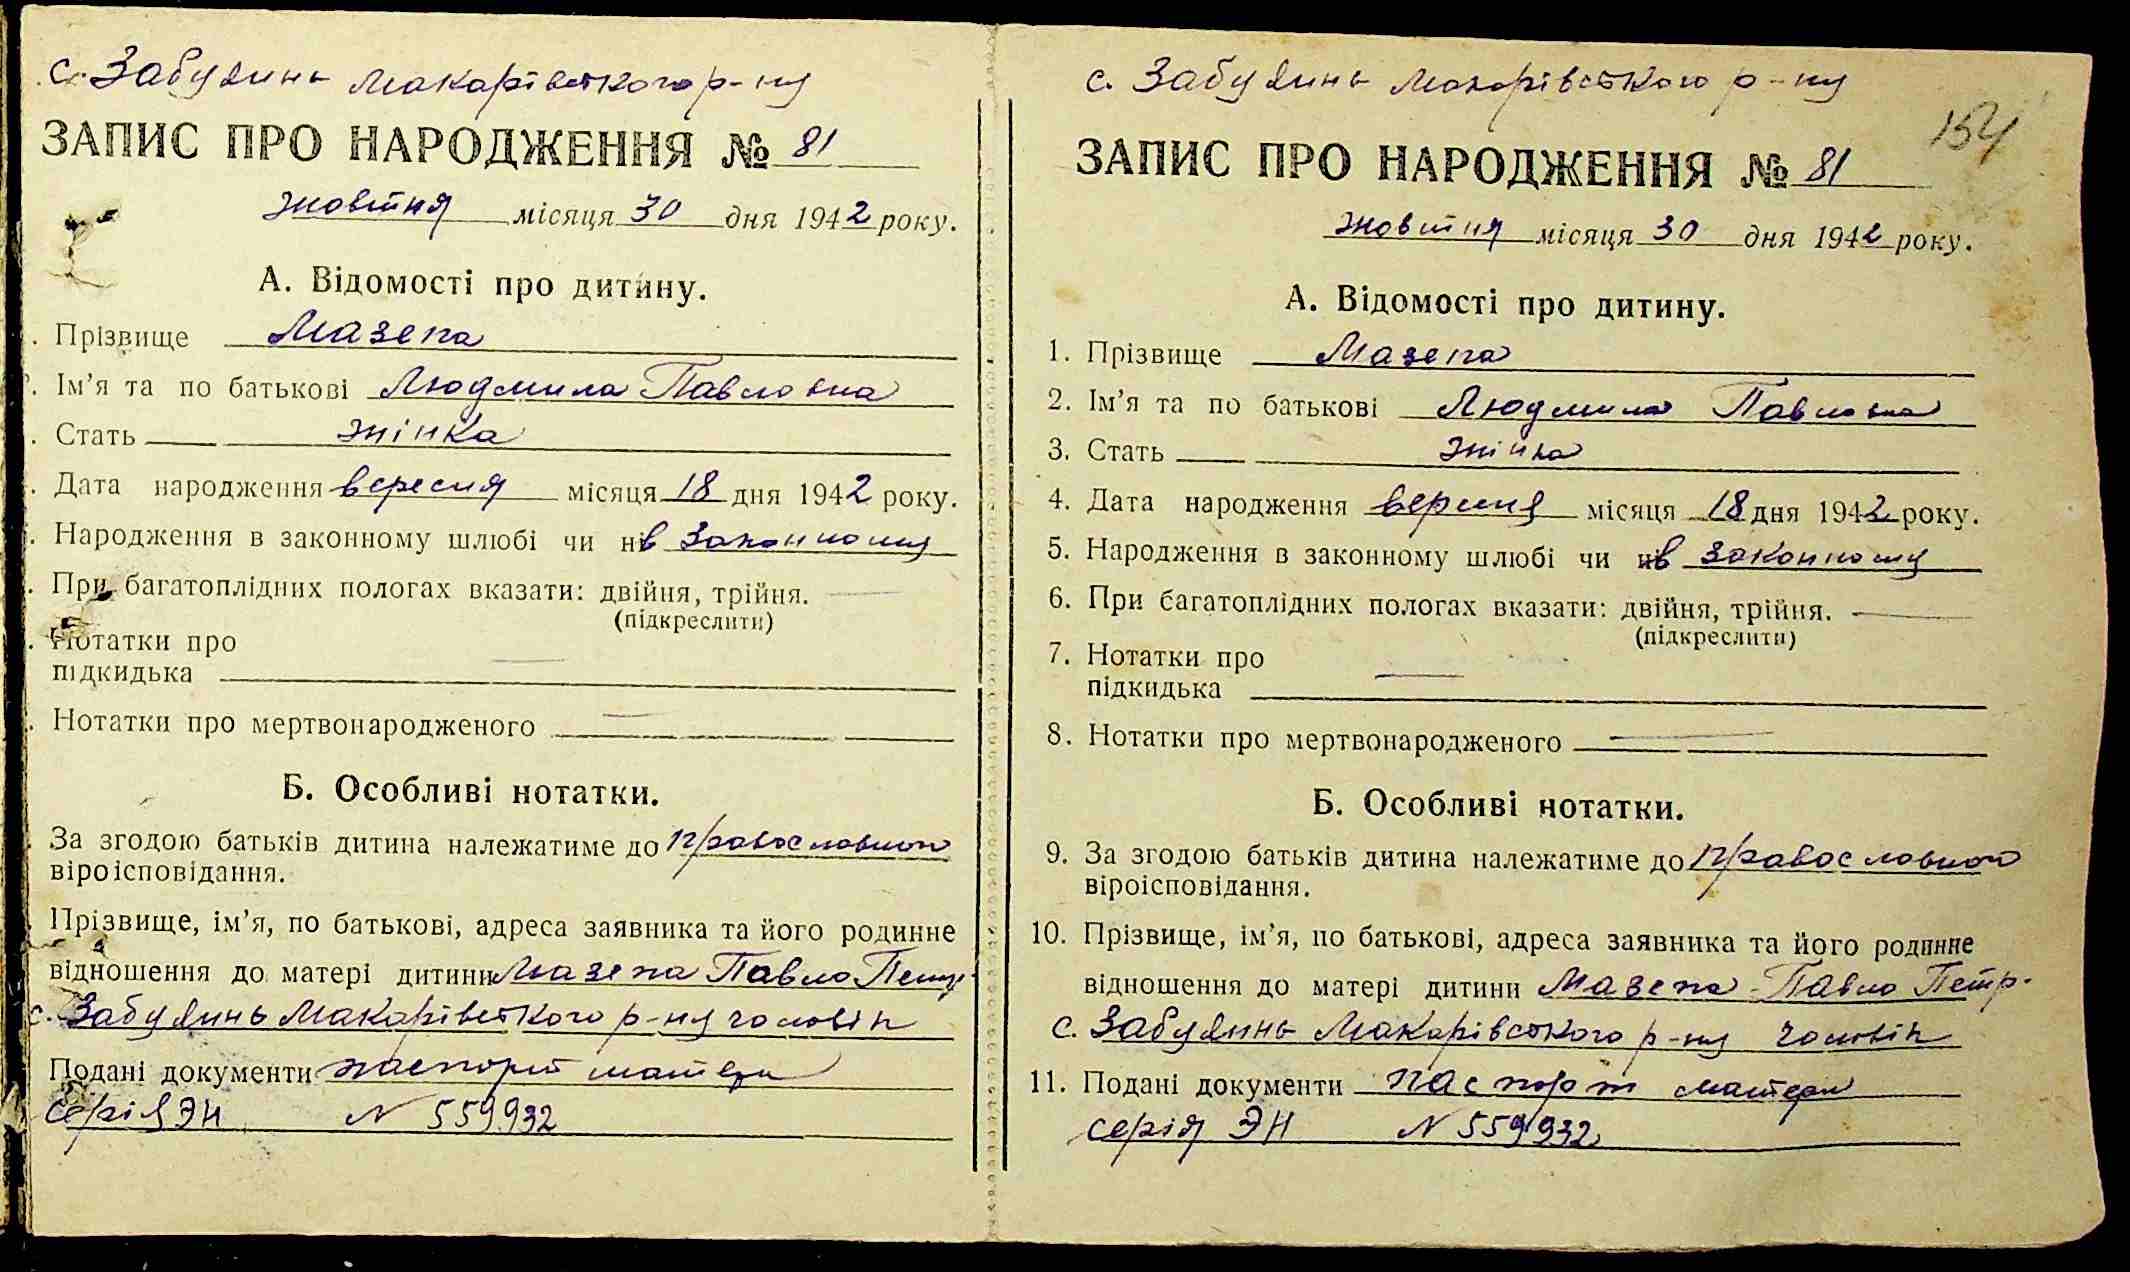 с. Забуянь Макарівського р-ну
ЗАПИС ПРО НАРОДЖЕННЯ № 81
жовтня місяця 30 дня 1942 року.
А. Відомості про дитину.
. Прізвище Мазепа
. Ім'я та по батькові Людмила Павловна
. Стать жінка
. Дата народження вересня місяця 18 дня 1942 року.
. Народження в законному шлюбі чи ні в законному
. При багатоплідних пологах вказати: двійня, трійня. —
(підкреслити)
. Нотатки про
підкидька —
. Нотатки про мертвонародженого —
Б. Особливі нотатки.
За згодою батьків дитина належатиме до православного
віроісповідання.
Прізвище, ім'я, по батькові, адреса заявника та його родинне
відношення до матері дитини Мазепа Павло Петр.
с. Забуянь Макарівського р-ну чоловік
Подані документи паспорт матери
серія ЭН N 559932
с. Забуянь Макарівського р-ну
154
ЗАПИС ПРО НАРОДЖЕННЯ № 81
жовтня місяця 30 дня 1942 року.
А. Відомості про дитину.
1. Прізвище Мазепа
2. Ім'я та по батькові Людмила Павловна
3. Стать жінка
4. Дата народження вересня місяця 18 дня 1942 року.
5. Народження в законному шлюбі чи ні в законному
6. При багатоплідних пологах вказати: двійня, трійня. —
(підкреслити)
7. Нотатки про
підкидька —
8. Нотатки про мертвонародженого —
Б. Особливі нотатки.
9. За згодою батьків дитина належатиме до православного
віроісповідання.
10. Прізвище, ім'я, по батькові, адреса заявника та його родинне
відношення до матері дитини Мазепа Павло Петр.
с. Забуянь Макарівського р-ну чоловік
11. Подані документи паспорт матери
серія ЭН N 559932